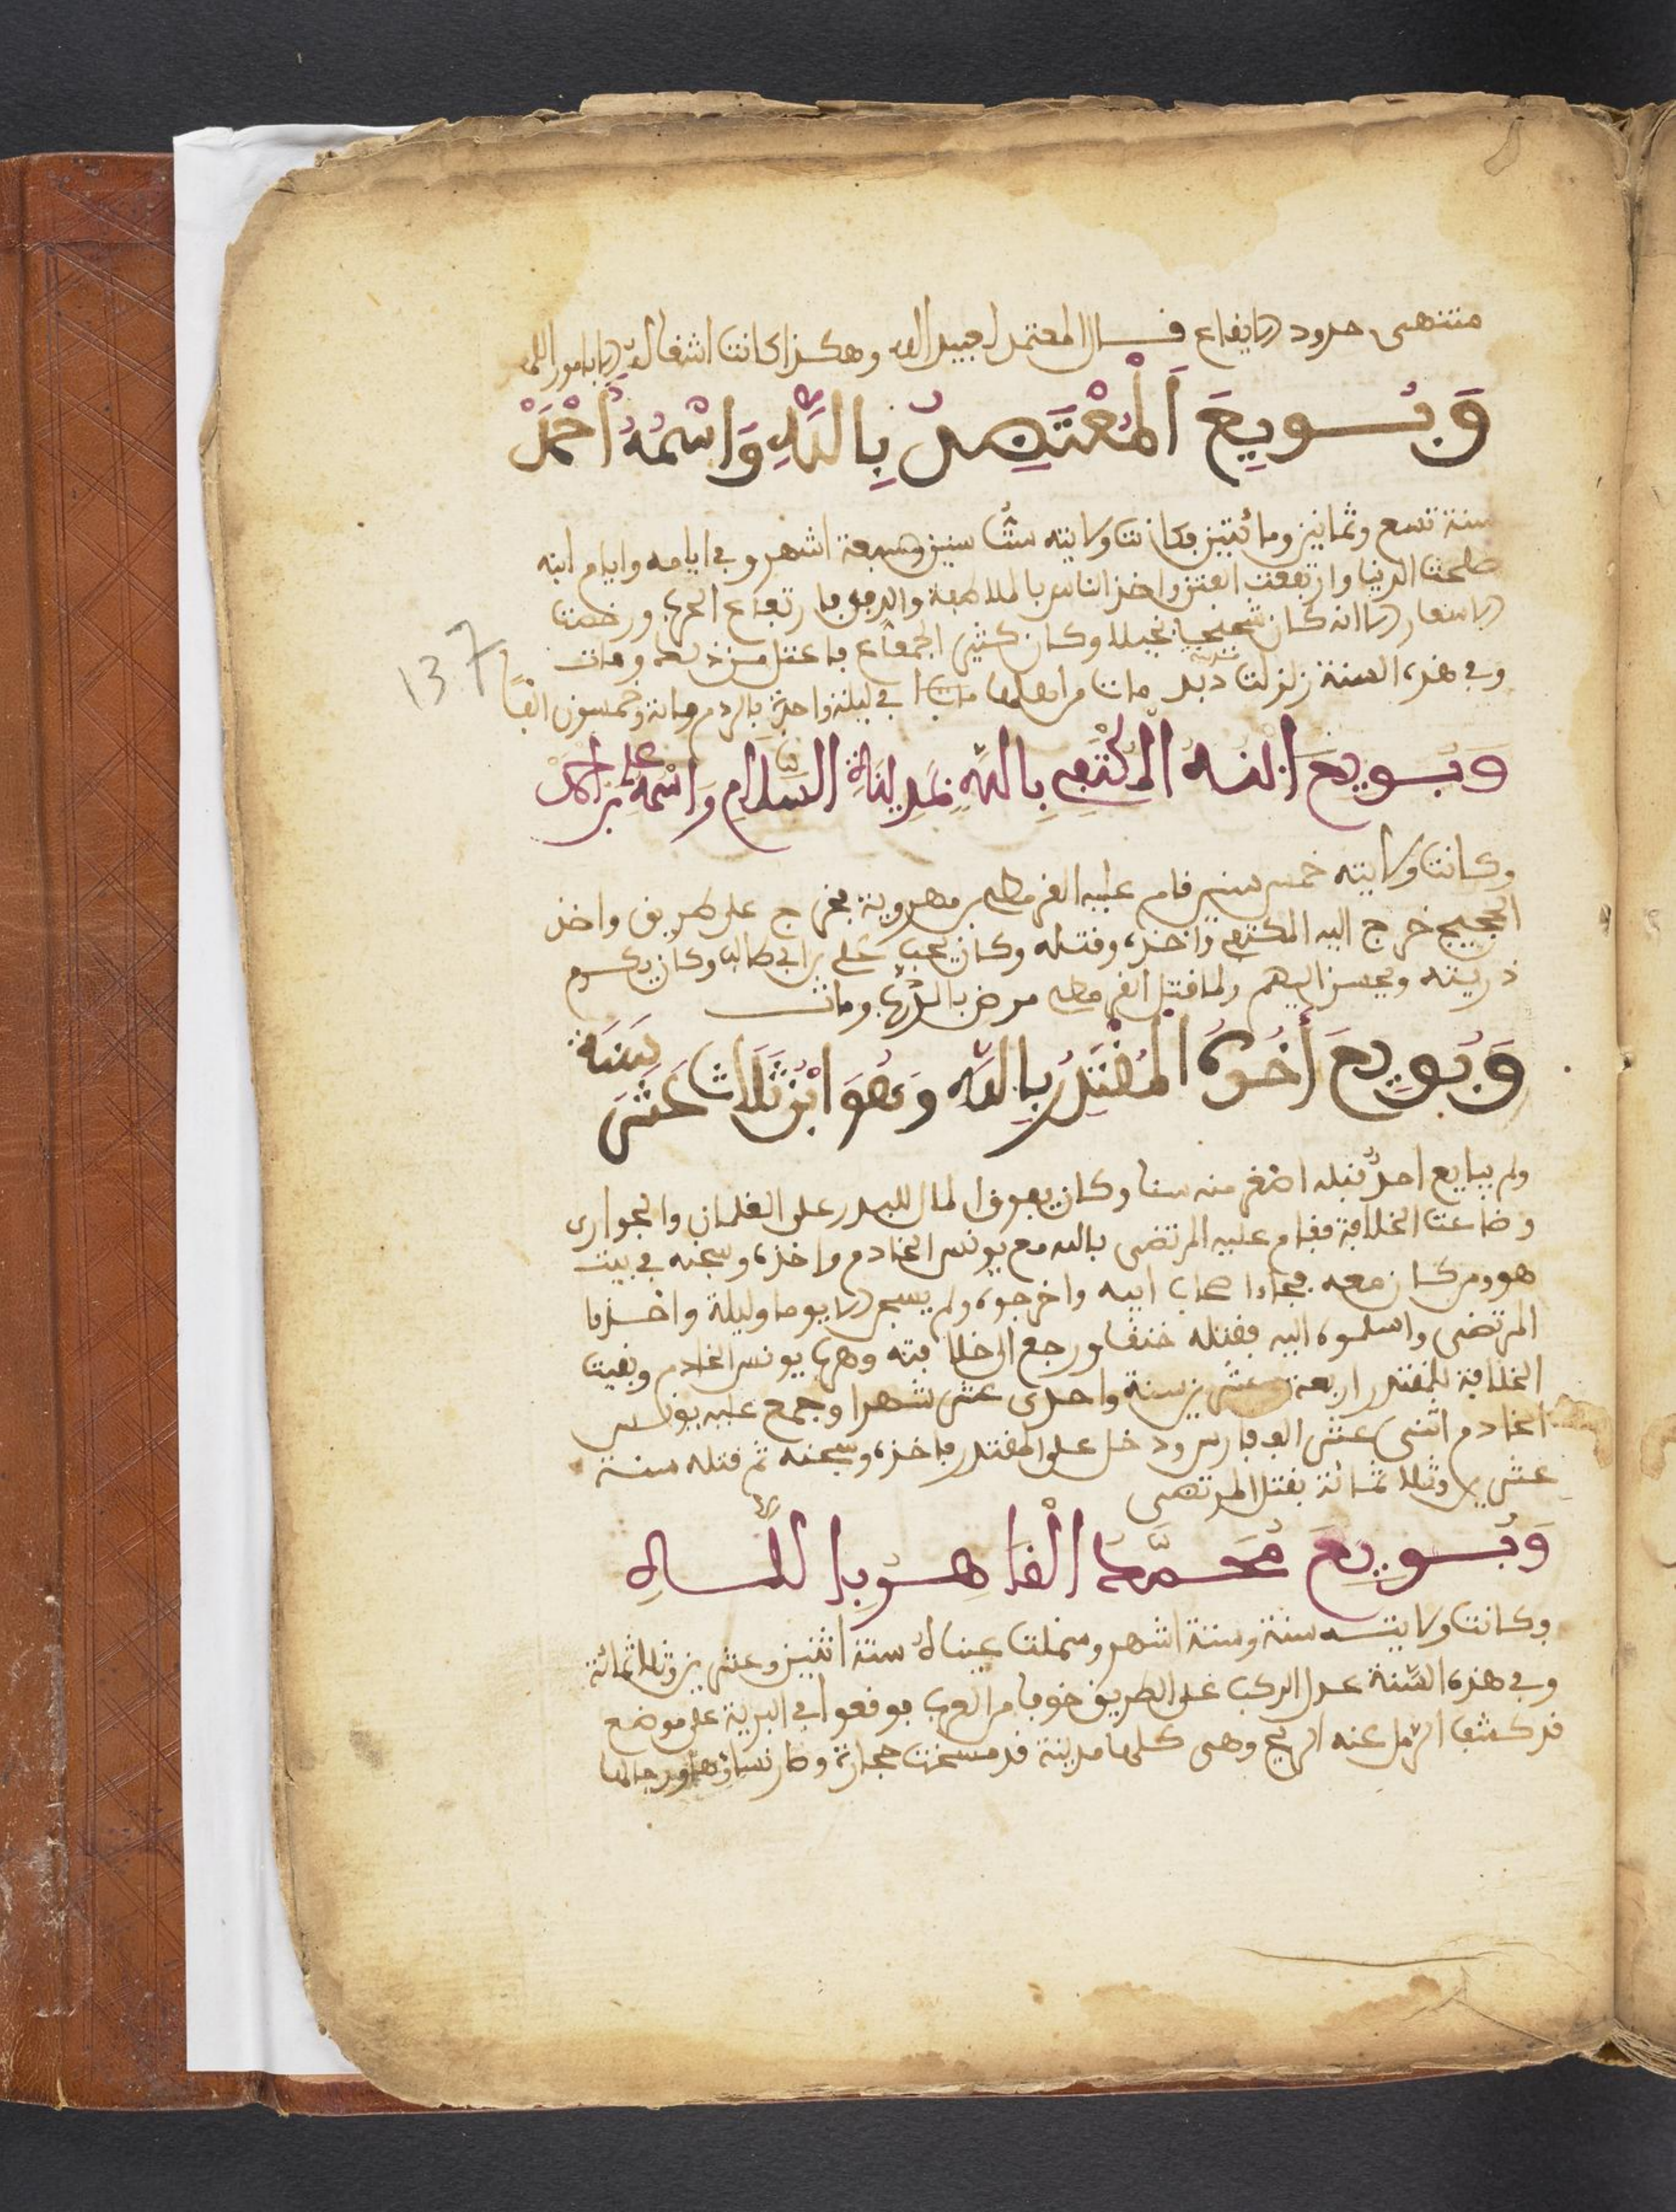 منتهى حدود الايقاع قال المعتمد لعبيد الله وهكذا كانت اشغال
وَبُويِعَ اَلْمُعْتَضِدُ بِاللَّهِ وَاسْمُهُ أَحْمَدْ
سنة تسع وثمانين ومائتين فكانت ولايته ست سنين وسبعة اشهر وفي ايامه وايام ابنه
صلحت الدنيا وارتفعت الفتن واخذ الناس بالملاطفة والرفق بارتفاع الحرب ورخصت
الاسعار الا انه كان شحيحا بخيلا وكان كثير الجماع فاعتل من ذلك ومات
وفي هذه السنة زلزلت دبيل مات من اهلها في ليلة واحدة بالردم مائة وخمسون الفا
137
وَبُويِعَ ابْنُهُ الْمُكْتَفِي بِاللَّهِ بِمَدِينَةِ السَّلَامِ وَاسْمُهُ عَلِي بن أحمد
وكانت ولايته خمس سنين قام عليه القرمطي بن مهروية فخرج على طريق واخذ
الحجيج خرج اليه المكتفي واخذه وقتله وكان يحب علي بن ابي طالب وكان يكرم
ذريته ويحسن اليهم ولما قتل القرمطي مرض بالذرب ومات
وَبُويِعَ أَخُوهُ الْمُقْتَدِرُ بِاللَّهِ وَهُوَ ابْنُ ثَلَاث عَشَر سَنَة
ولم يبايع احد قبله اصغر منه سنا وكان يعرف المال للبدر على الغلمان والجواري
وضاعت الخلافة فقام عليه المرتضى بالله مع يونس الخادم واخذه وسجنه في بيت
هو ومن كان معه فجاء اصحاب ابيه واخرجوه ولم يسجن الا يوما وليلة واخذوا
المرتضى واسلموه اليه فقتله خنقا ورجع الى خلافته وهرب يونس الخادم وبقيت
الخلافة للمقتدر اربعة وعشرين سنة واحدى عشر شهرا وجمع عليه يونس
الخادم اثنى عشر الف فارس ودخل على المقتدر فاخذه وسجنه ثم قتله سنة
عشرين وثلاثمائة بقتل المرتضى
وَبُويِعَ مُحَمَّد الْقَاهِرُ بِاللَّهِ
وكانت ولايته سنة وستة اشهر وسملت عيناه سنة اثنين وعشرين وثلاثمائة
وفي هذه السَّنة عدل الركب عن الطريق خوفا من العرب فوقعوا في البرية على موضع
قد كشف الرمل عنه الريح وهى كلها مدينة قد مسخت حجارة وصار نساؤها ورجالها